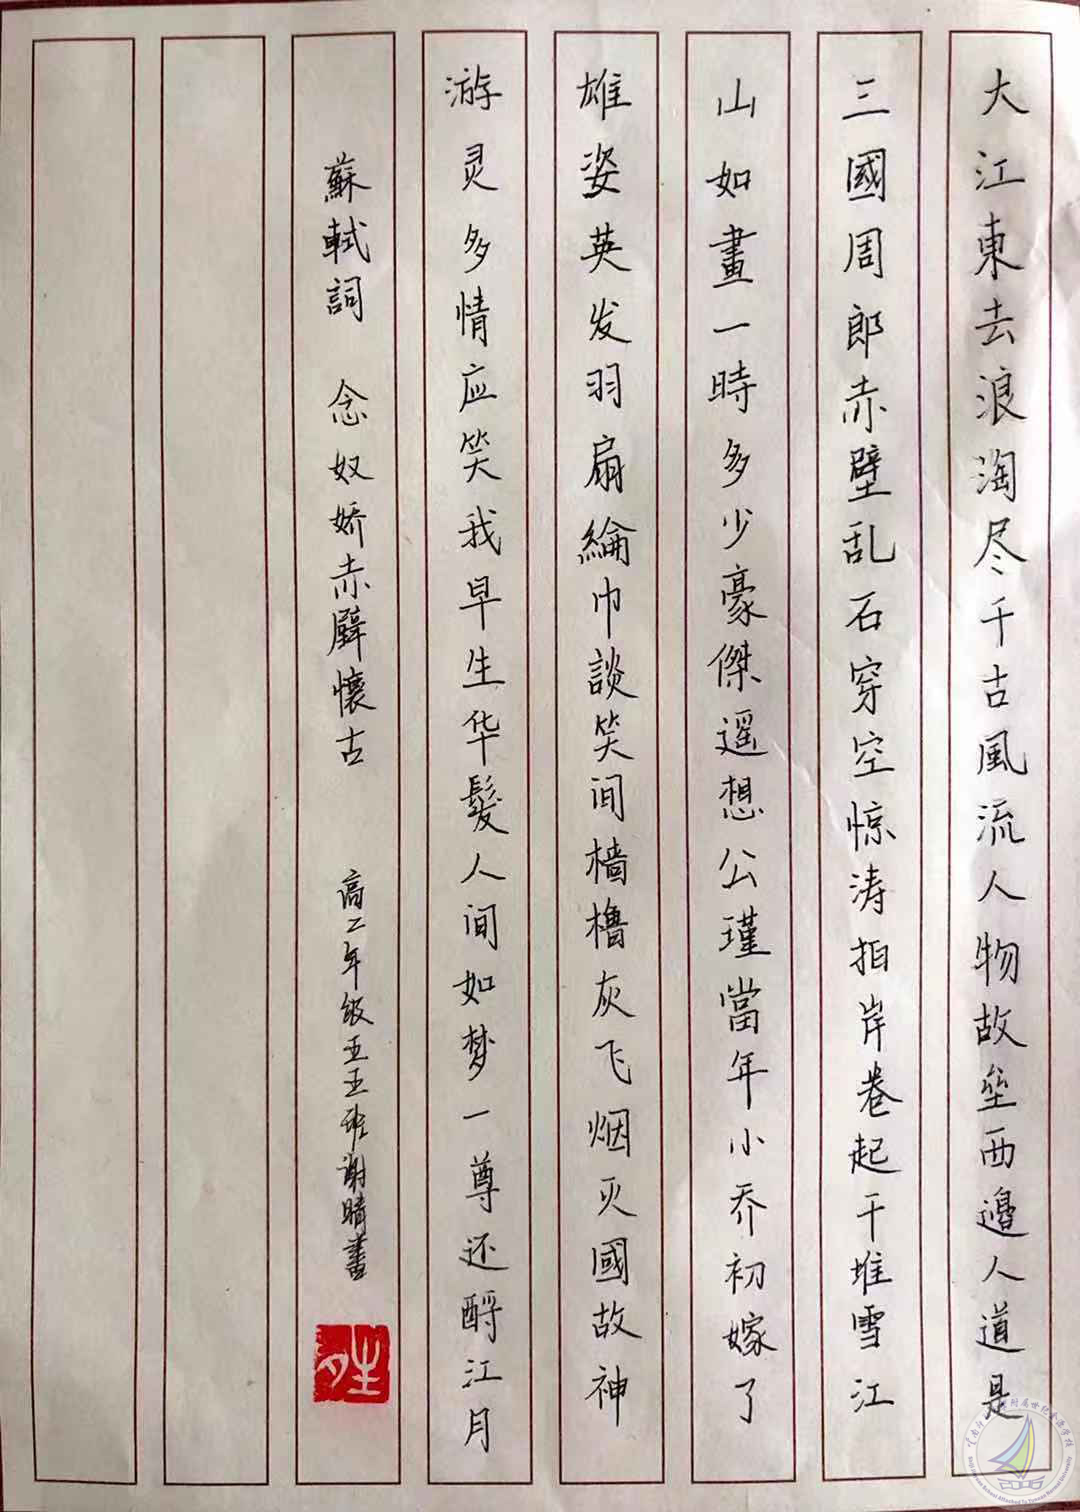 大江東去浪淘尽千古風流人物故垒西邊人道是
三國周郎赤壁乱石穿空惊涛拍岸卷起千堆雪江
山如畫一時多少豪傑遥想公瑾當年小乔初嫁了
雄姿英发羽扇綸巾談笑间樯櫓灰飞烟灭國故神
游灵多情应笑我早生华髮人间如梦一尊还酹江月
蘇軾詞 念奴娇赤壁懷古 高二年级五五班谢晴書